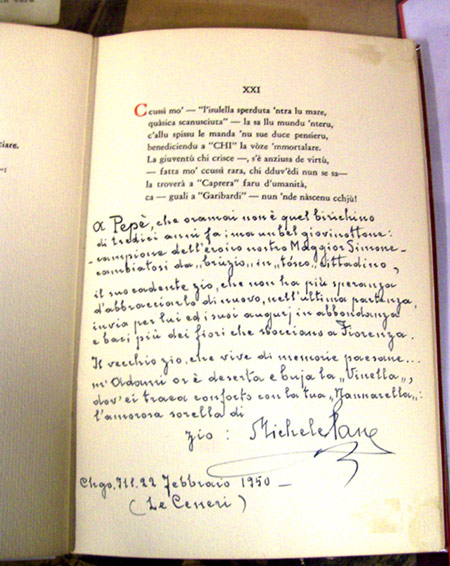 XXI
Ccussì mo' — "l'isulella sperduta 'ntra lu mare,
quàsica scanusciuta" — la sa llu mundu 'nteru,
c'allu spissu le manda 'nu sue duce pensieru,
benediciendu a "CHI" la vòze 'mmortalare.
La gioventù chi crisce —, s'è anziusa de virtù,
— fatta mo' ccussì rara, chi dduv'èdi nun se sa—
la troverà a "Caprera" faru d'umanità,
ca — guali a "Garibardi" — nun 'nde nàscenu cchjù!
A Pepè, che oramai non è quel birichino
di tredici anni fa; ma un bel giovinottone:
-campione dell'eroico nostro Maggior Simone-
cambiatosi da "brizio" in "tósco" cittadino,
il suo cadente zio, che non ha più speranza
d'abbracciarlo di nuovo, nell'ultima partenza,
invia per lui ed i suoi augurj in abbondanza
e baci più dei fiori che sbocciano a Fiorenza.
Il vecchio zio, che vive di memorie paesane...
m'Adami or è deserta e buja la "Vinella",
dov'ei traea conforto con la tua "Nannarella":
l'amorosa sorella di
zio: Michele Pane
Chgo. Ill. 22 Febbraio 1950 —
(Le Ceneri)